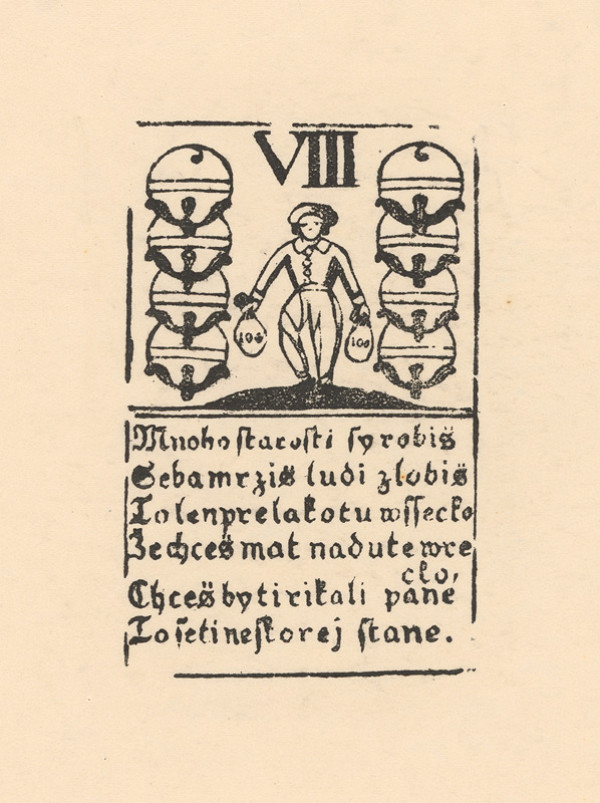 VIII
104
100
Mnoho starosti sy robiš
Seba mrziš ludi zlobiš
To len pre lakotu wssecko
Že chceš mat nadute wre
cko,
Chceš by ti rikali pane
To še ti neskorej stane.